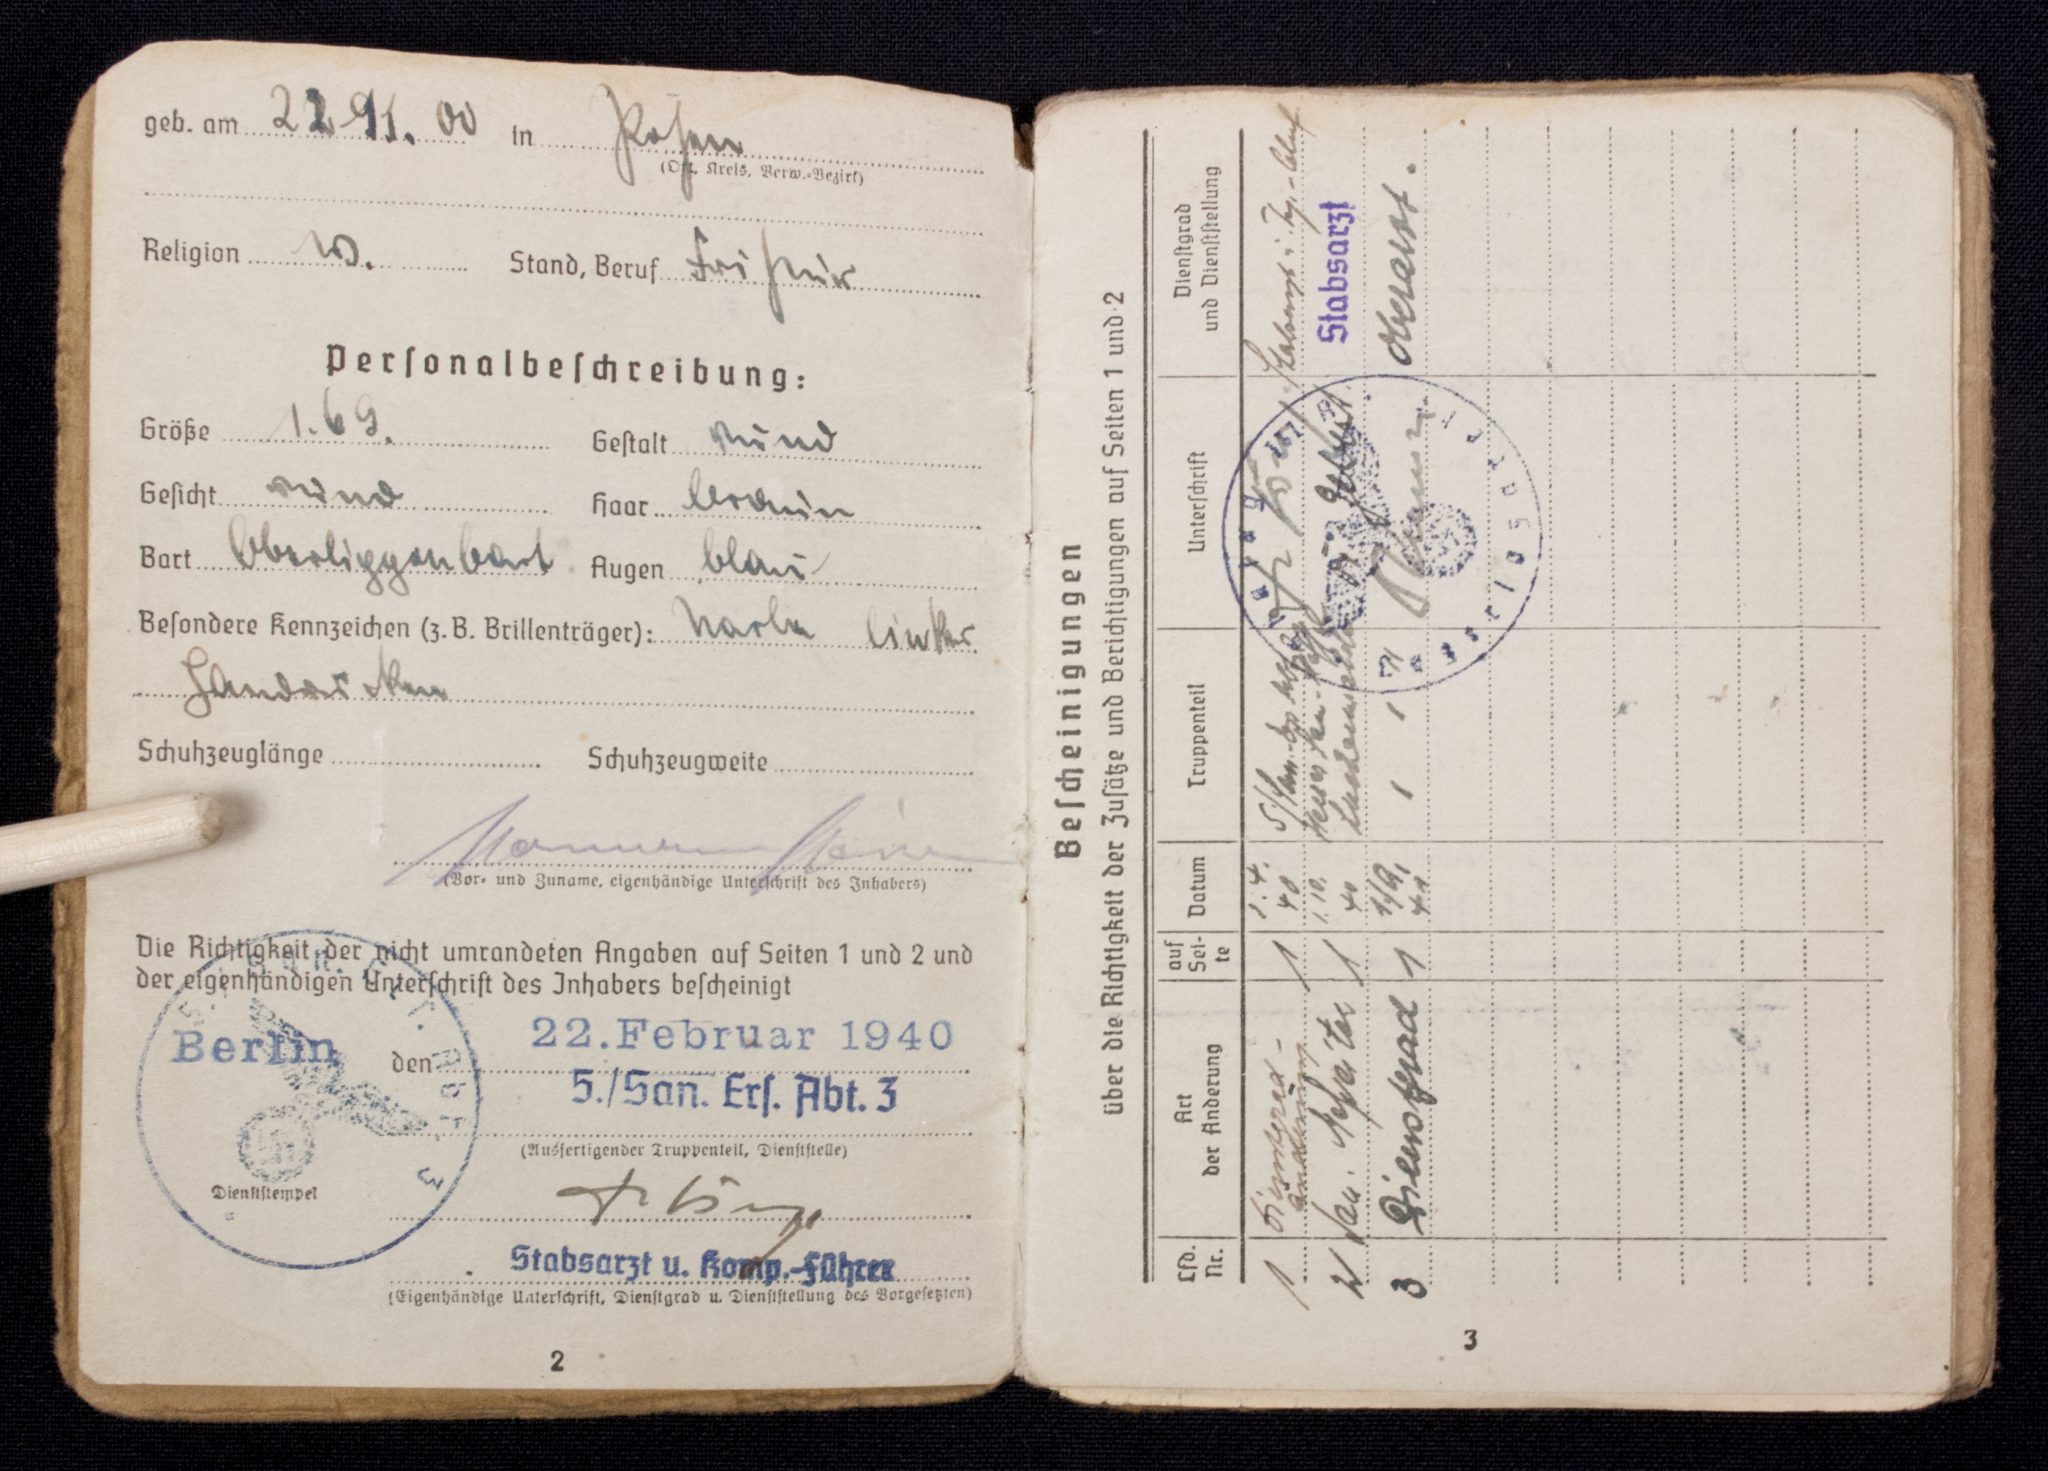 geb. am 22 11. 00 in Posen
(Ort, Kreis, Verw.-Bezirk)
Religion Stand, Beruf Friseur
Personalbeschreibung:
Größe 1.69. Gestalt rund
Gesicht rund Haar braun
Bart Oberlippenbart Augen blau
Besondere Kennzeichen (z. B. Brillenträger): Narbe linker
Handrücken
Schuhzeuglänge Schuhzeugweite
(Vor- und Zuname, eigenhändige Unterschrift des Inhabers)
Die Richtigkeit der nicht umrandeten Angaben auf Seiten 1 und 2 und
der eigenhändigen Unterschrift des Inhabers bescheinigt
Berlin den 22. Februar 1940
5./San. Ers. Abt. 3
(Ausfertigender Truppenteil, Dienststelle)
Dienststempel
Stabsarzt u. Komp.-Führer
(Eigenhändige Unterschrift, Dienstgrad u. Dienststellung des Vorgesetzten)
2
Bescheinigungen
über die Richtigkeit der Zusätze und Berichtigungen auf Seiten 1 und 2
Lfd. Nr. Art der Änderung auf Sei-te Datum Truppenteil Unterschrift Dienstgrad und Dienststellung
1 1 1.4. 40
2 1 1.10. 40 Stabsarzt
3 Dienstgrad 1 1/9. 41 Oberarzt.
3